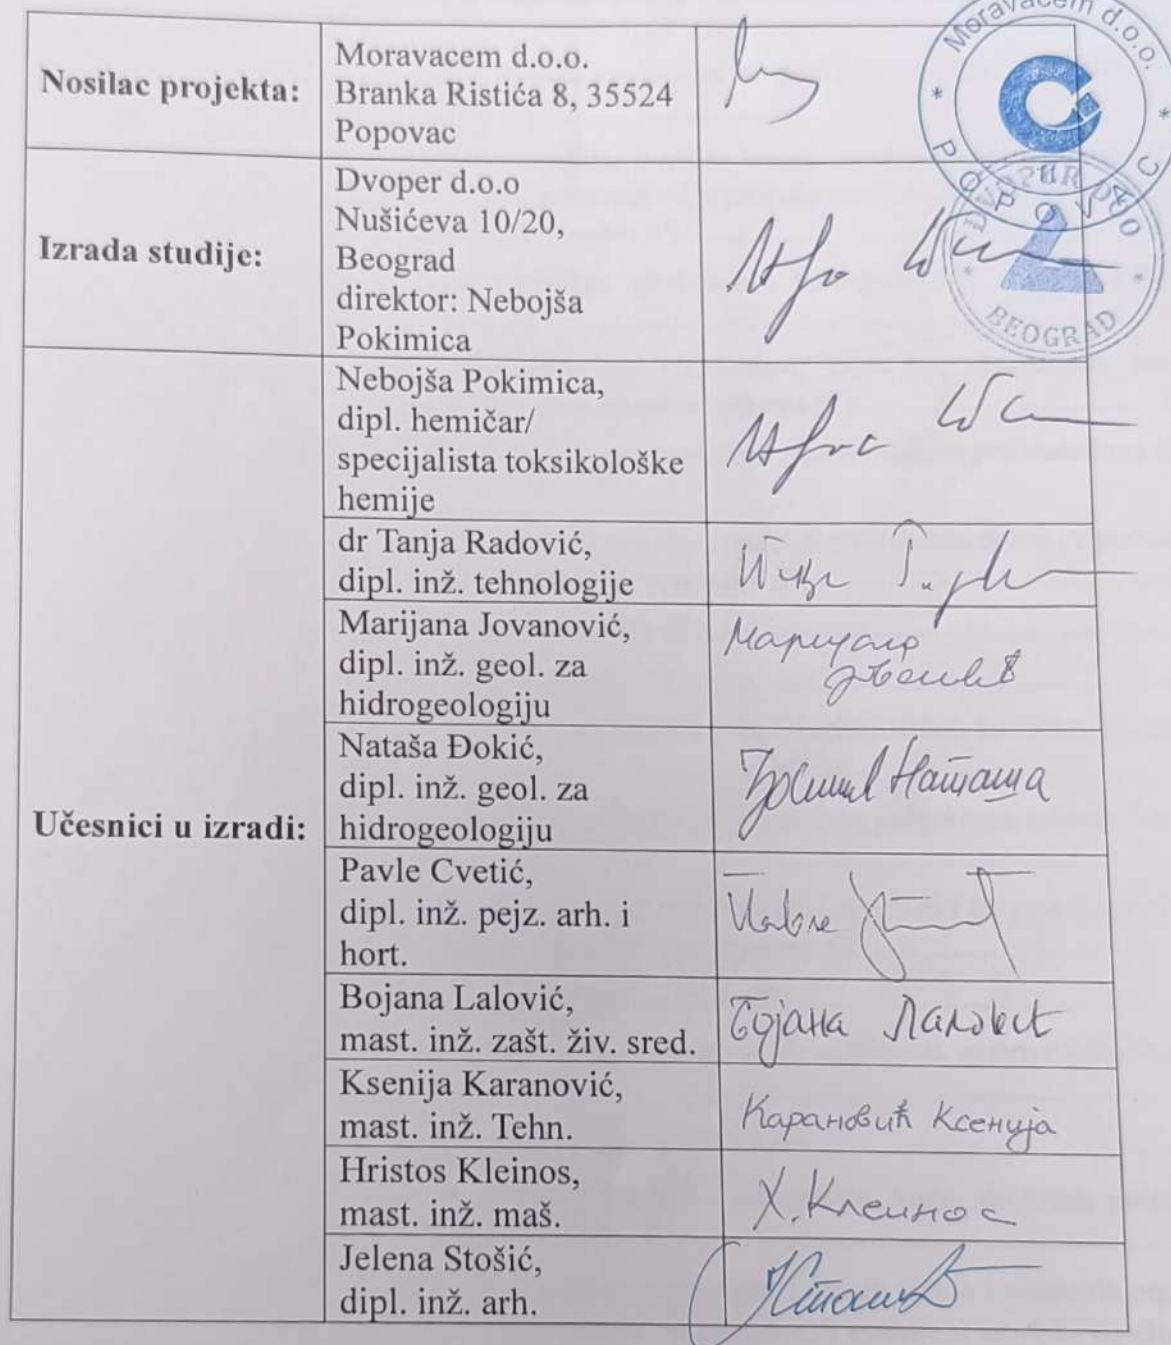 Moravacem d.o.o.
POPOVAC
Nosilac projekta:
Moravacem d.o.o.
Branka Ristića 8, 35524
Popovac
Izrada studije:
Dvoper d.o.o
Nušićeva 10/20,
Beograd
direktor: Nebojša
Pokimica
DVOPER DOO
BEOGRAD
Učesnici u izradi:
Nebojša Pokimica,
dipl. hemičar/
specijalista toksikološke
hemije
dr Tanja Radović,
dipl. inž. tehnologije
Marijana Jovanović,
dipl. inž. geol. za
hidrogeologiju
Nataša Đokić,
dipl. inž. geol. za
hidrogeologiju
Наташа
Pavle Cvetić,
dipl. inž. pejz. arh. i
hort.
Bojana Lalović,
mast. inž. zašt. živ. sred.
Бојана Лаловић
Ksenija Karanović,
mast. inž. Tehn.
Карановић Ксенија
Hristos Kleinos,
mast. inž. maš.
Х. Клеинос
Jelena Stošić,
dipl. inž. arh.